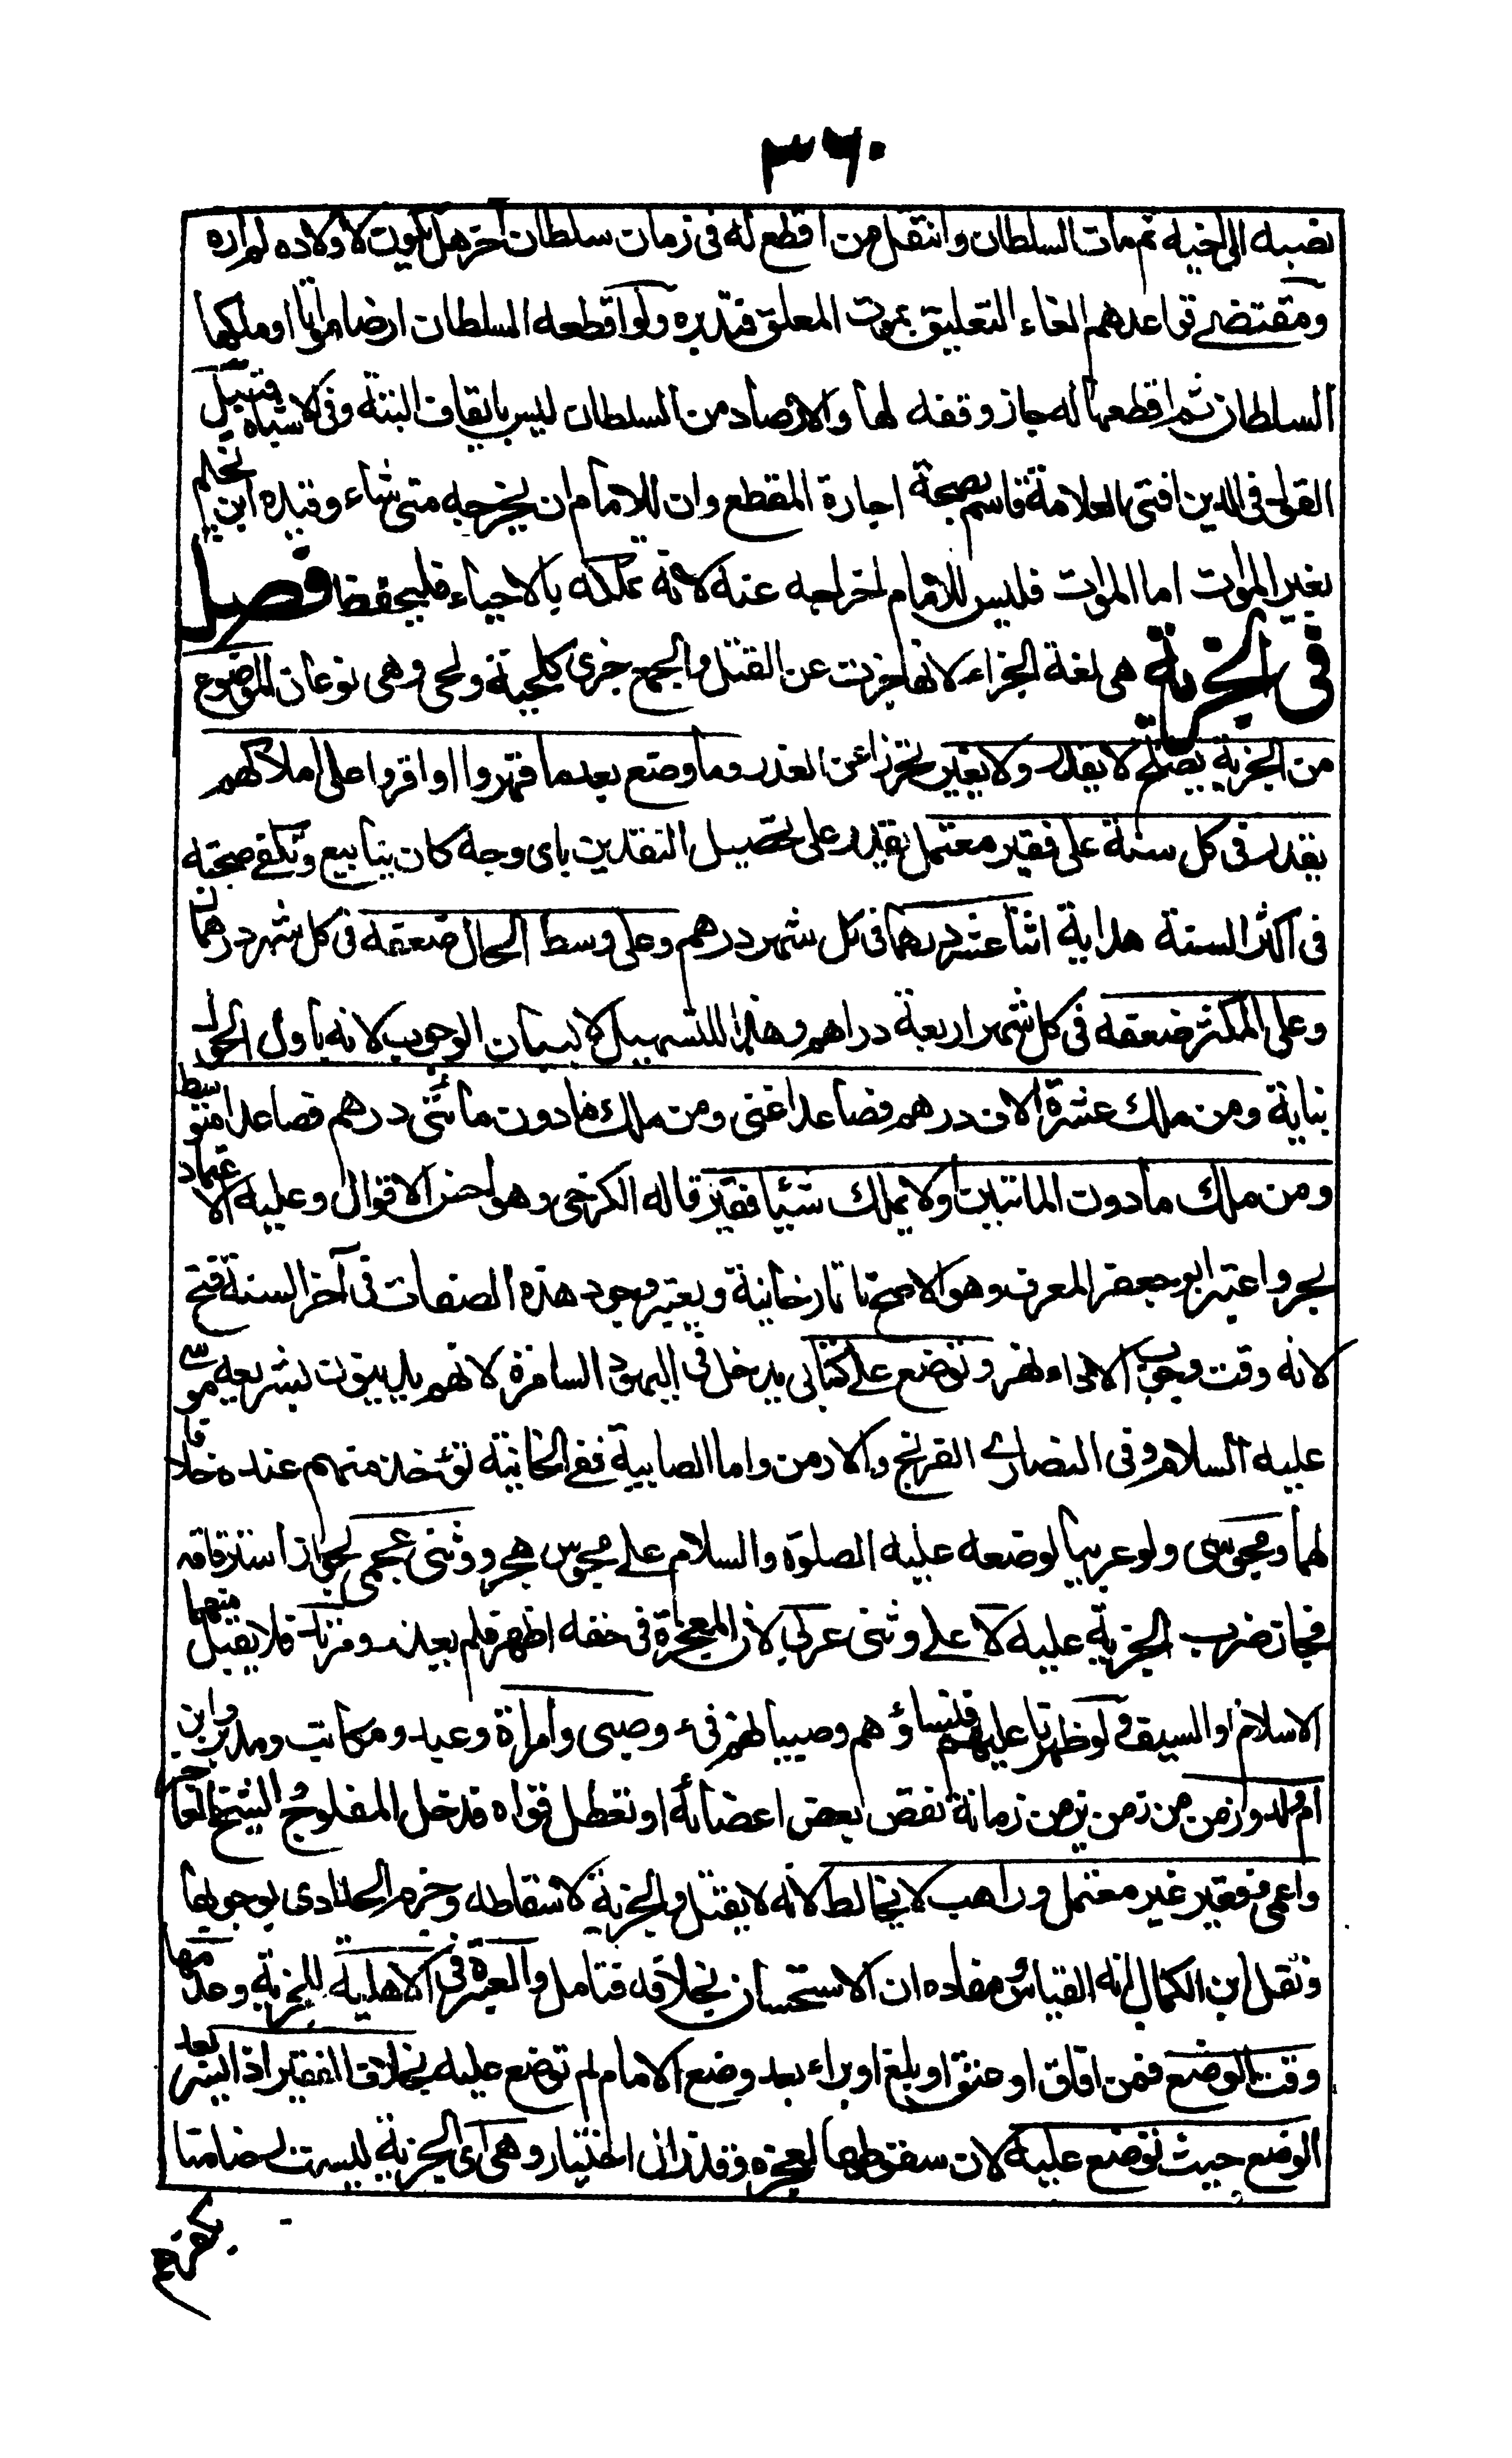 ٣٦٠
نصيبه الى اخيه ثم مات السلطان وانتقل من اقطع له فى زمان سلطان آخر هل يكون لاولاده لم اره
ومقتضى قواعدهم الغاء التعليق بموت المعلق فتدبره ولو اقطعه السلطان ارضا مواتا او ملكها
السلطان ثم اقطعها له جاز وقفه لها والارصاد من السلطان ليس بايقاف البتة وفى الاشباه قبيل
القول فى الدين افتى العلامة قاسم بصحة اجارة المقطع وان للامام ان يخرجه متى شاء وقيده ابن نجيم
بغير الموات اما الموات فليس للامام اخراجه عنه لانه تملكه بالاحياء فليحفظ فصل
فى الجزية هى لغة الجزاء لانها جزت عن القتل والجمع جزى كلحية ولحى وهى نوعان الموضوع
من الجزية بصلح لا يقدر ولا يغير تحرزا عن الغدر وما وضع بعد ما قهروا واقروا على املاكهم
يقدر فى كل سنة على فقير معتمل يقدر على تحصيل النقدين باى وجه كان ينابيع وتكفى صحته
فى اكثر السنة هداية اثنا عشر درهما فى كل شهر درهم وعلى وسط الحال ضعفه فى كل شهر درهمان
وعلى المكثر ضعفه فى كل شهر اربعة دراهم وهذا للتسهيل لا لبيان الوجوب لانه باول الحول
بناية ومن ملك عشرة الاف درهم فصاعدا غنى ومن ملك مادون مائتى درهم فصاعدا متوسط
ومن ملك مادون المائتين او لا يملك شيئا فقير قاله الكرخى وهو احسن الاقوال وعليه الاعتماد
بحر واعتبر ابو جعفر العرف وهو الاصح تاتارخانية ويعتبر وجود هذه الصفات فى آخر السنة فتح
لانه وقت وجوب الاداء نهر وتوضع على كتابى يدخل فى اليهود السامرة لانهم يدينون بشريعه موسى
عليه السلام وفى النصارى الفرنج والارمن واما الصابية ففى الخانية تؤخذ منهم عنده خلافا
لهما ومجوسى ولو عربيا لوضعه عليه الصلوة والسلام على مجوس هجر ووثنى عجمى لجواز استرقاقه
فجاز ضرب الجزية عليه لا على وثنى عربى لان المعجزة فى حقه اظهر فلم يعذر ومرتد فلا يقبل منهما
الاسلام او السيف ولو ظهرنا عليهم فنساؤهم وصبيانهم فىء وصبى وامراة وعبد ومكاتب ومدبر وابن
ام ولد وزمن من زمن يزمن زمانة نقص بعض اعضائه او تعطل قواه فدخل المفلوج والشيخ العاجز
واعمى وفقير غير معتمل وراهب لا يخالط لانه لا يقتل والجزية لاسقاطه وجزم الحدادى بوجوبها
ونقل ابن الكمال انه القياس ومفاده ان الاستحسان بخلافه فتامل والعبرة فى الاهلية للجزية وعدمها
وقت الوضع فمن افاق او عتق او بلغ او براء بعد وضع الامام لم توضع عليه بخلاف الفقير اذا ايسر بعد
الوضع حيث توضع عليه لان سقوطها لعجزه وقد زال اختيار وهى اى الجزية ليست رضا منا
بكفرهم